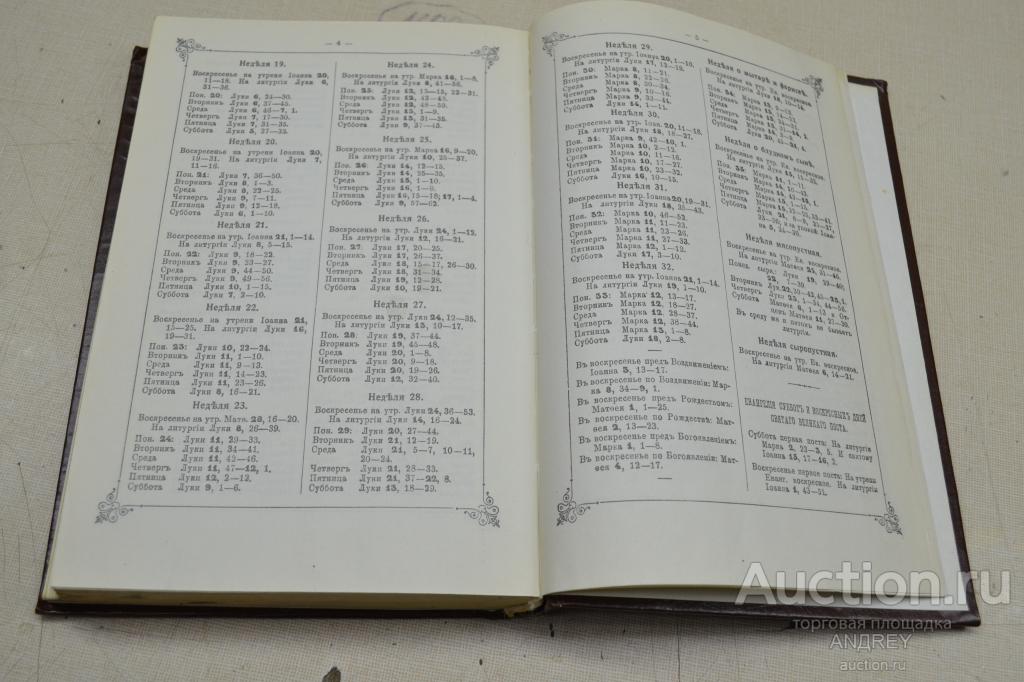 — 4 —
Недѣля 19.
Воскресенье на утрени Іоанна 20,
11—18. На литургіи Луки 6,
31—36.
Пон. 20: Луки 6, 24—30.
Вторникъ Луки 6, 37—45.
Среда Луки 6, 46—7, 1.
Четвергъ Луки 7, 17—30.
Пятница Луки 7, 31—35.
Суббота Луки 5, 27—32.
Недѣля 20.
Воскресенье на утрени Іоанна 20,
19—31. На литургіи Луки 7,
11—16.
Пон. 21: Луки 7, 36—50.
Вторникъ Луки 8, 1—3.
Среда Луки 8, 22—25.
Четвергъ Луки 9, 7—11.
Пятница Луки 9, 12—18.
Суббота Луки 6, 1—10.
Недѣля 21.
Воскресенье на утр. Іоанна 21, 1—14.
На литургіи Луки 8, 5—15.
Пон. 22: Луки 9, 18—22.
Вторникъ Луки 9, 23—27.
Среда Луки 9, 44—50.
Четвергъ Луки 9, 49—56.
Пятница Луки 10, 1—15.
Суббота Луки 7, 2—10.
Недѣля 22.
Воскресенье на утрени Іоанна 21,
15—25. На литургіи Луки 16,
19—31.
Пон. 23: Луки 10, 22—24.
Вторникъ Луки 11, 1—10.
Среда Луки 11, 9—13.
Четвергъ Луки 11, 14—23.
Пятница Луки 11, 23—26.
Суббота Луки 8, 16—21.
Недѣля 23.
Воскресенье на утр. Матѳ. 28, 16—20.
На литургіи Луки 8, 26—39.
Пон. 24: Луки 11, 29—33.
Вторникъ Луки 11, 34—41.
Среда Луки 11, 42—46.
Четвергъ Луки 11, 47—12, 1.
Пятница Луки 12, 2—12.
Суббота Луки 9, 1—6.
Недѣля 24.
Воскресенье на утр. Марка 16, 1—8.
На литургіи Луки 8, 41—56.
Пон. 25: Луки 12, 13—15, 22—31.
Вторникъ Луки 12, 42—48.
Среда Луки 12, 48—59.
Четвергъ Луки 13, 1—9.
Пятница Луки 13, 31—35.
Суббота Луки 9, 37—43.
Недѣля 25.
Воскресенье на утр. Марка 16, 9—20.
На литургіи Луки 10, 25—37.
Пон. 26: Луки 14, 12—15.
Вторникъ Луки 14, 25—35.
Среда Луки 15, 1—10.
Четвергъ Луки 16, 1—9.
Пятница Луки 16, 15—18; 17, 1—4.
Суббота Луки 9, 57—62.
Недѣля 26.
Воскресенье на утр. Луки 24, 1—12.
На литургіи Луки 12, 16—21.
Пон. 27: Луки 17, 20—25.
Вторникъ Луки 17, 26—37.
Среда Луки 18, 15—17, 26—30.
Четвергъ Луки 18, 31—34.
Пятница Луки 19, 12—28.
Суббота Луки 10, 19—21.
Недѣля 27.
Воскресенье на утр. Луки 24, 12—35.
На литургіи Луки 13, 10—17.
Пон. 28: Луки 19, 37—44.
Вторникъ Луки 19, 45—48.
Среда Луки 20, 1—8.
Четвергъ Луки 20, 9—18.
Пятница Луки 20, 19—26.
Суббота Луки 12, 32—40.
Недѣля 28.
Воскресенье на утр. Луки 24, 36—53.
На литургіи Луки 14, 16—24.
Пон. 29: Луки 20, 27—44.
Вторникъ Луки 21, 12—19.
Среда Луки 21, 5—7, 10—11,
20—24.
Четвергъ Луки 21, 28—33.
Пятница Луки 21, 37—22, 8.
Суббота Луки 13, 18—29.
— 5 —
Недѣля 29.
Воскресенье на утр. Іоанна 20, 1—10.
На литургіи Луки 17, 12—19.
Пон. 30: Марка 8, 11—21.
Вторникъ Марка 8, 22—26.
Среда Марка 8, 30—34.
Четвергъ Марка 9, 10—16.
Пятница Марка 9, 33—41.
Суббота Луки 14, 1—11.
Недѣля 30.
Воскресенье на утр. Іоан. 20, 11—18.
На литургіи Луки 18, 18—27.
Пон. 31: Марка 9, 42—10, 1.
Вторникъ Марка 10, 2—12.
Среда Марка 10, 11—16.
Четвергъ Марка 10, 17—27.
Пятница Марка 10, 23—32.
Суббота Луки 16, 10—15.
Недѣля 31.
Воскресенье на утр. Іоан. 20, 19—31.
На литургіи Луки 18, 35—43.
Пон. 32: Марка 10, 46—52.
Вторникъ Марка 11, 11—23.
Среда Марка 11, 23—26.
Четвергъ Марка 11, 27—33.
Пятница Марка 12, 1—12.
Суббота Луки 17, 3—10.
Недѣля 32.
Воскресенье на утр. Іоанна 21, 1—14.
На литургіи Луки 19, 1—10.
Пон. 33: Марка 12, 13—17.
Вторникъ Марка 12, 18—27.
Среда Марка 12, 28—37.
Четвергъ Марка 12, 38—44.
Пятница Марка 13, 1—8.
Суббота Луки 18, 2—8.
Въ воскресенье предъ Воздвиженіемъ:
Іоанна 3, 13—17.
Въ воскресенье по Воздвиженіи: Мар-
ка 8, 34—9, 1.
Въ воскресенье предъ Рождествомъ:
Матѳея 1, 1—25.
Въ воскресенье по Рождествѣ: Мат-
ѳея 2, 13—23.
Въ воскресенье предъ Богоявленіемъ:
Марка 1, 1—8.
Въ воскресенье по Богоявленіи: Мат-
ѳея 4, 12—17.
Недѣля о мытарѣ и фарисеѣ.
Недѣля о блудномъ сынѣ.
Недѣля мясопустная.
Воскресенье на утр. Ев. воскресное.
На литургіи Матѳея 25, 31—46.
Въ среду же и пятокъ не бываетъ
литургіи.
Недѣля сыропустная.
Воскресенье на утр. Ев. воскресное.
На литургіи Матѳея 6, 14—21.
ЕВАНГЕЛІЯ СУББОТЪ И ВОСКРЕСНЫХЪ ДНЕЙ
СВЯТАГО ВЕЛИКАГО ПОСТА.
Суббота первая поста: На литургіи
Марка 2, 23—3, 5. И святому
Іоанна 15, 17—16, 2.
Воскресенье первое поста: На утрени
Еванг. воскресное. На литургіи
Іоанна 1, 43—51.
Auction.ru
торговая площадка
ANDREY
auction.ru